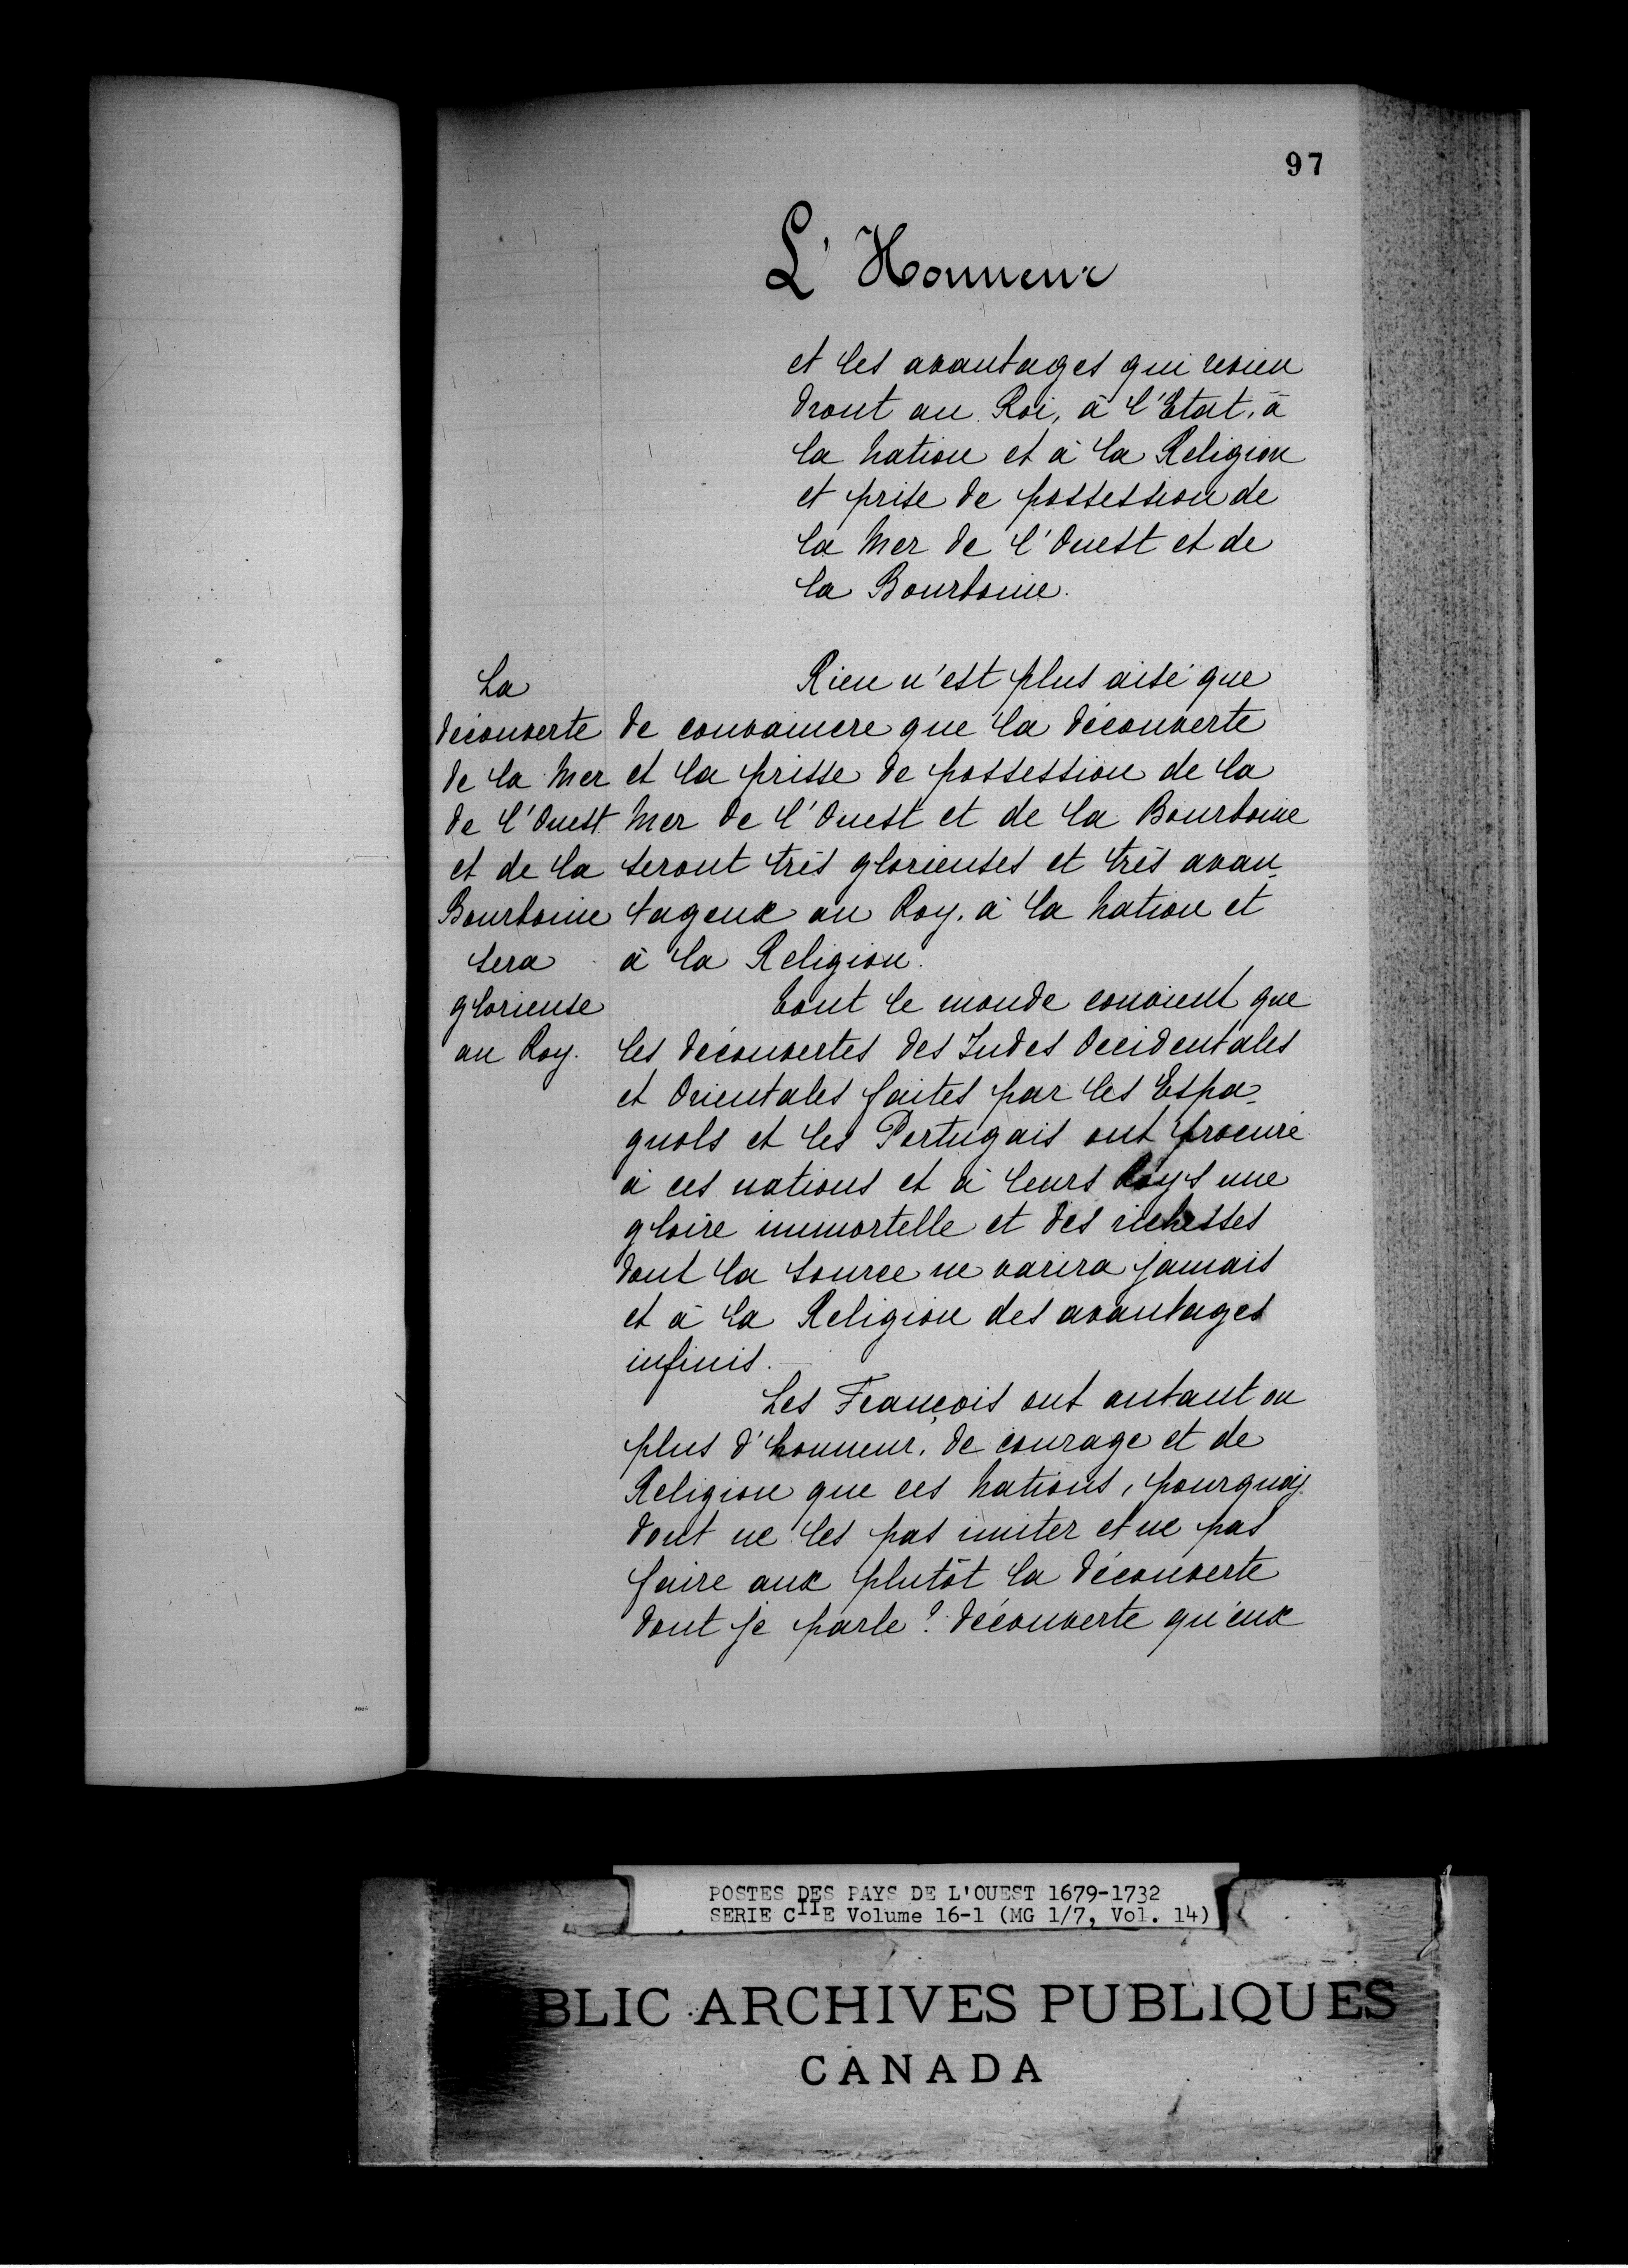 97
L'Honneur
et les avantages qui revien
dront au Roi, à l'Etat, à
la Nation et à la Religion
et prise de possession de
la Mer de l'Ouest et de
la Bourbonie.
La
découverte
de la Mer
de l'Ouest
et de la
Bourbonie
sera
glorieuse
au Roy.
Rien n'est plus aisé que
de convaincre que la découverte
et la prisse de possession de la
Mer de l'Ouest et de la Bourbonie
seront très glorieuses et très avan-
tageux au Roy, à la Nation et
à la Religion.
Tout le monde convient que
les découvertes des Indes Occidentales
et Orientales faites par les Espa-
gnols et les Portugais ont procuré
à ces nations et à leurs Roys une
gloire immortelle et des richesses
dont la source ne varira jamais
et à la Religion des avantages
infinis.
Les François ont autant ou
plus d'honneur, de courage et de
Religion que ces Nations, pourquoy
dont ne les pas imiter et ne pas
faire aux plutôt la découverte
dont je parle? découverte qu'eux
POSTES DES PAYS DE L'OUEST 1679-1732
SERIE CIIE Volume 16-1 (MG 1/7, Vol. 14)
BLIC ARCHIVES PUBLIQUES
CANADA